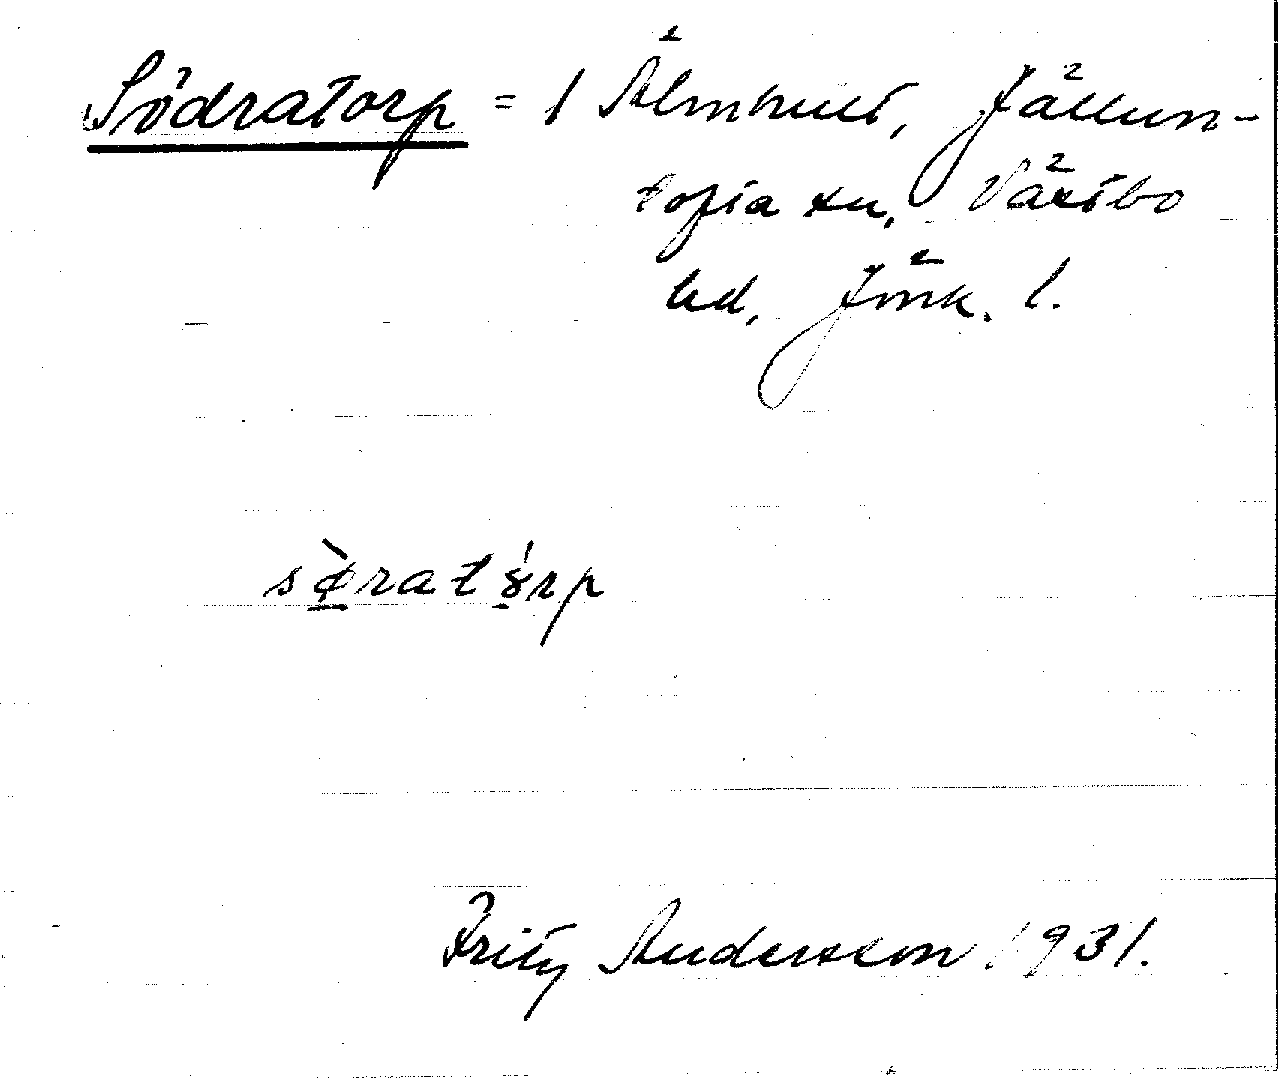 Södratorp = 1 Älmhult, Jällun-
tofta sn, Västbo
hd, Jönk. l.
sø̀ratórp
Fritz Andersson 1931.